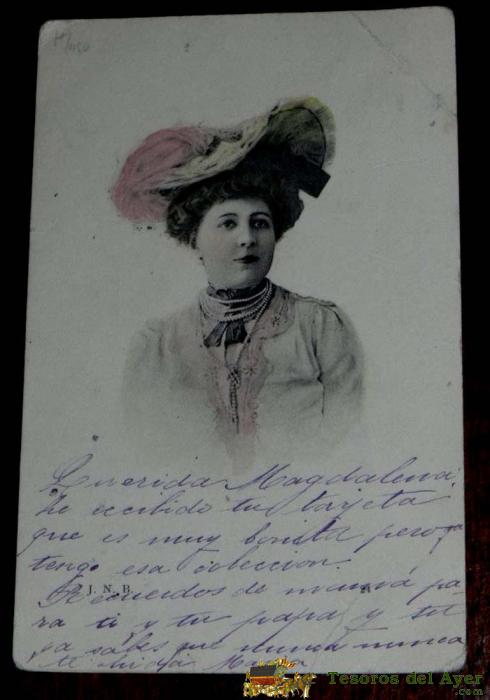 Querida Magdalena.
he recibido tu tarjeta
que es muy bonita pero ya
tengo esa coleccion.
J. N. B.
Recuerdos de mamá pa-
ra ti y tu papa y tu
ya sabes que nunca nunca
te olvida
Tesoros del Ayer
.com